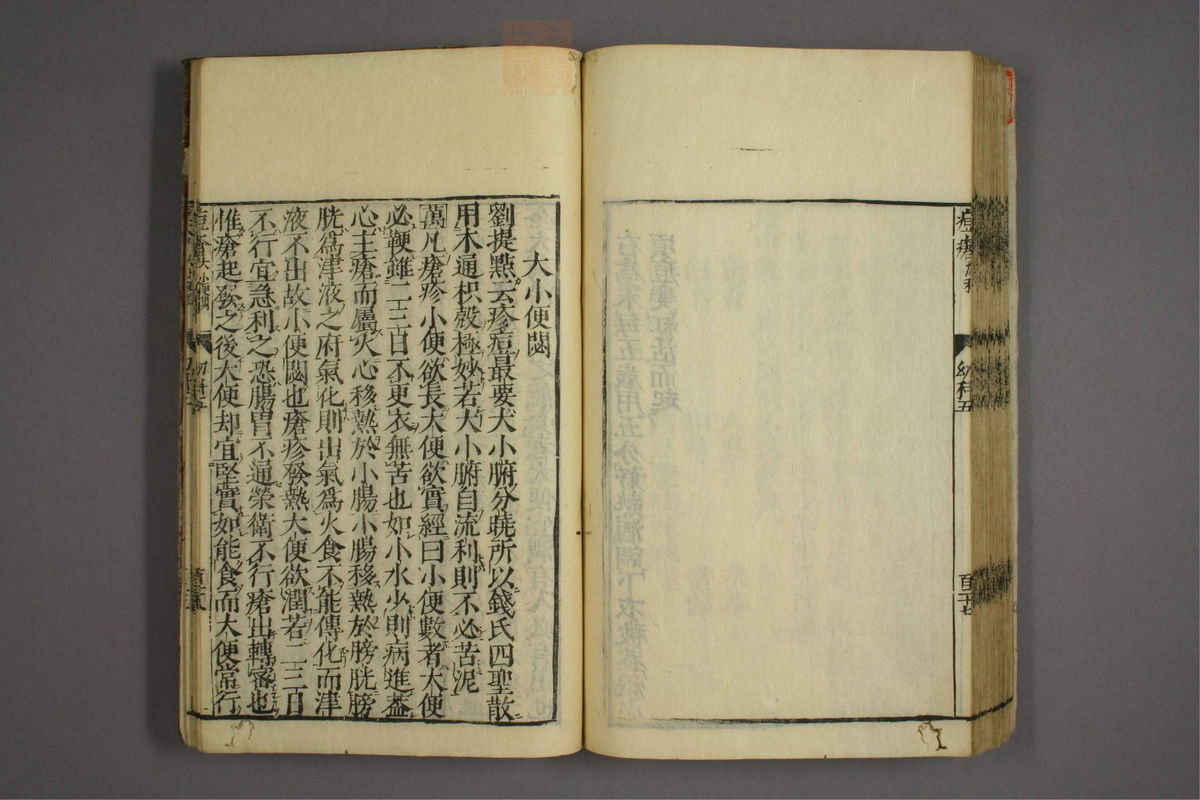 大小便閟
劉提㸃云疹痘最要大小腑分曉所以錢氏四聖散
用木通枳殼極妙若大小腑自流利則不必苦泥
萬凡瘡疹小便欲長大便欲實經曰小便數者大便
必鞕雖二三日不更衣無苦也如小水少則病進蓋
心主瘡而屬火心移熱於小腸小腸移熱於膀胱膀
胱爲津液之府氣化則出氣爲火食不能傳化而津
液不出故小便閟也瘡疹發熱大便欲潤若二三日
不行宜急利之恐腸胃不通榮衛不行瘡出轉宻也
惟瘡起發之後大便却宜堅實如能食而大便常行
幼科五